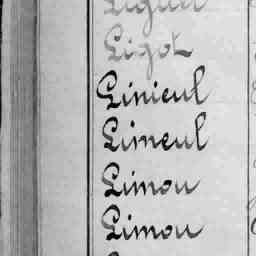 Ligot
Linieul
Limeul
Limou
Limou